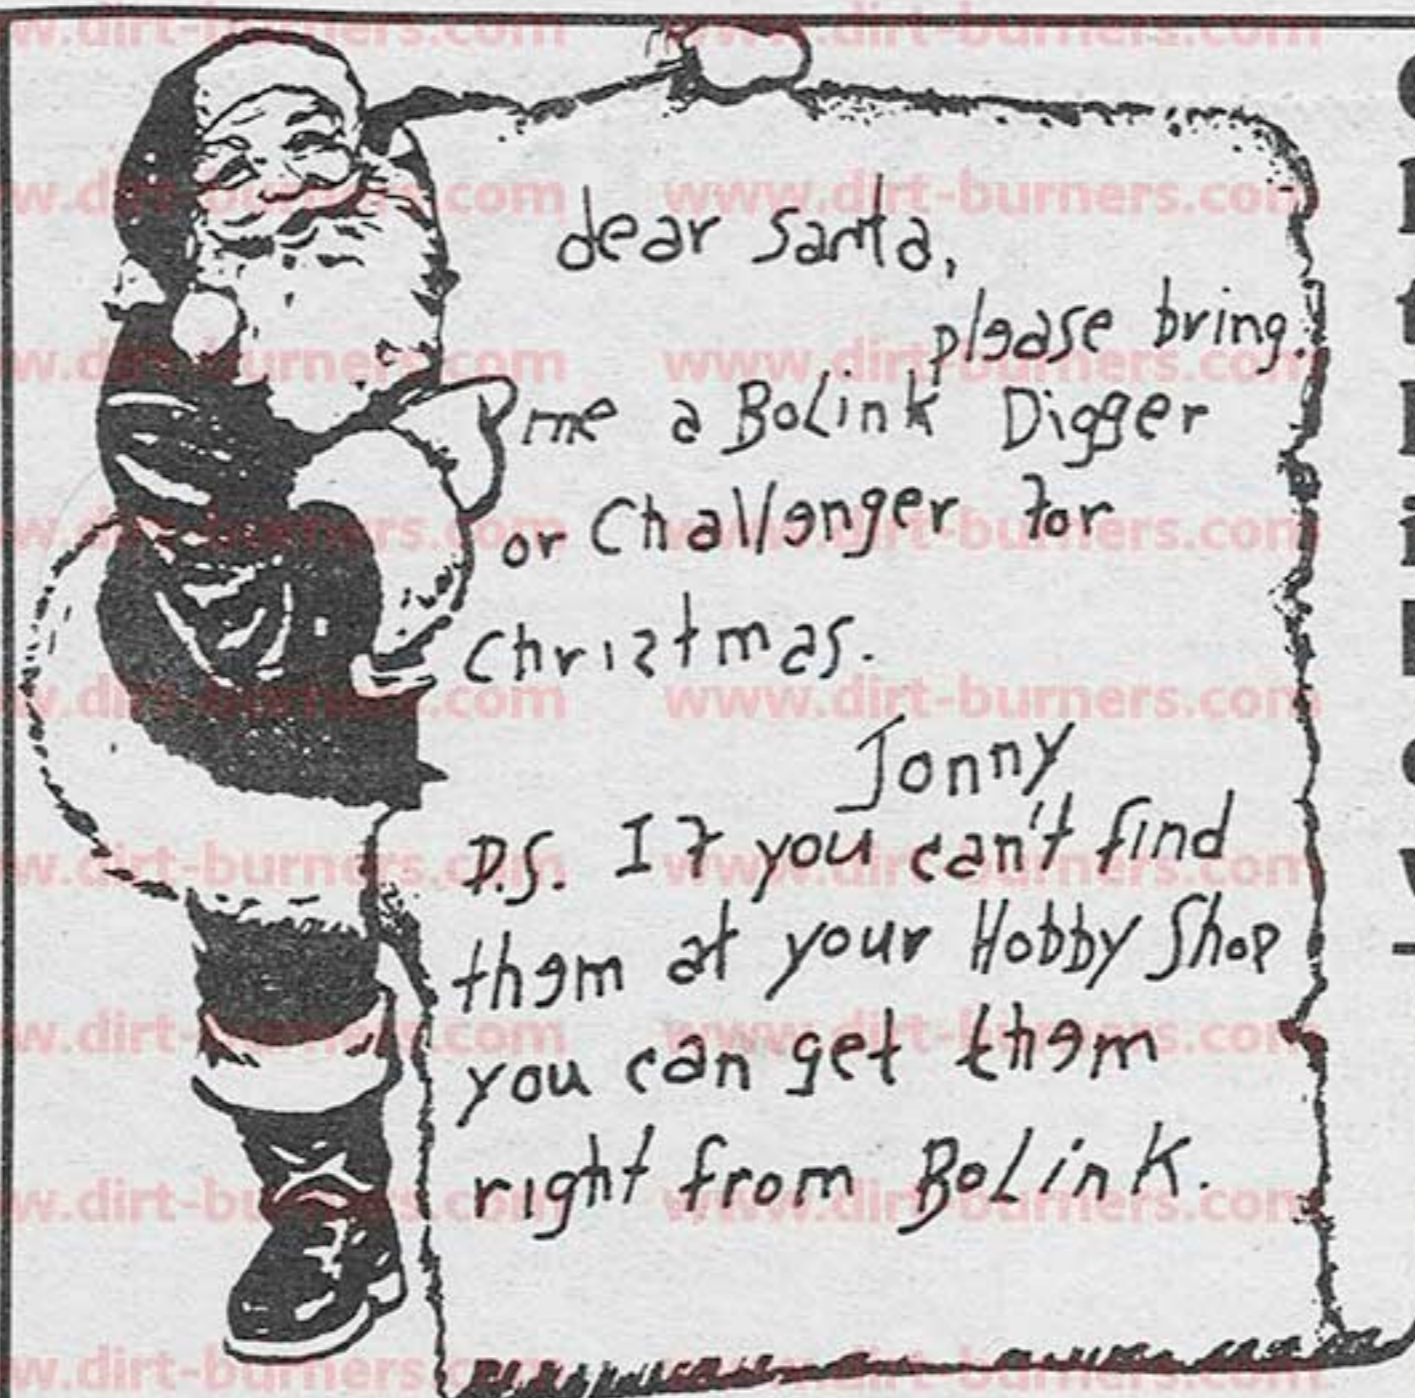 dear Santa,
please bring
me a BoLink Digger
or Challenger for
Christmas.
Jonny
P.S. If you can't find
them at your Hobby Shop
you can get them
right from BoLink.
www.dirt-burners.com